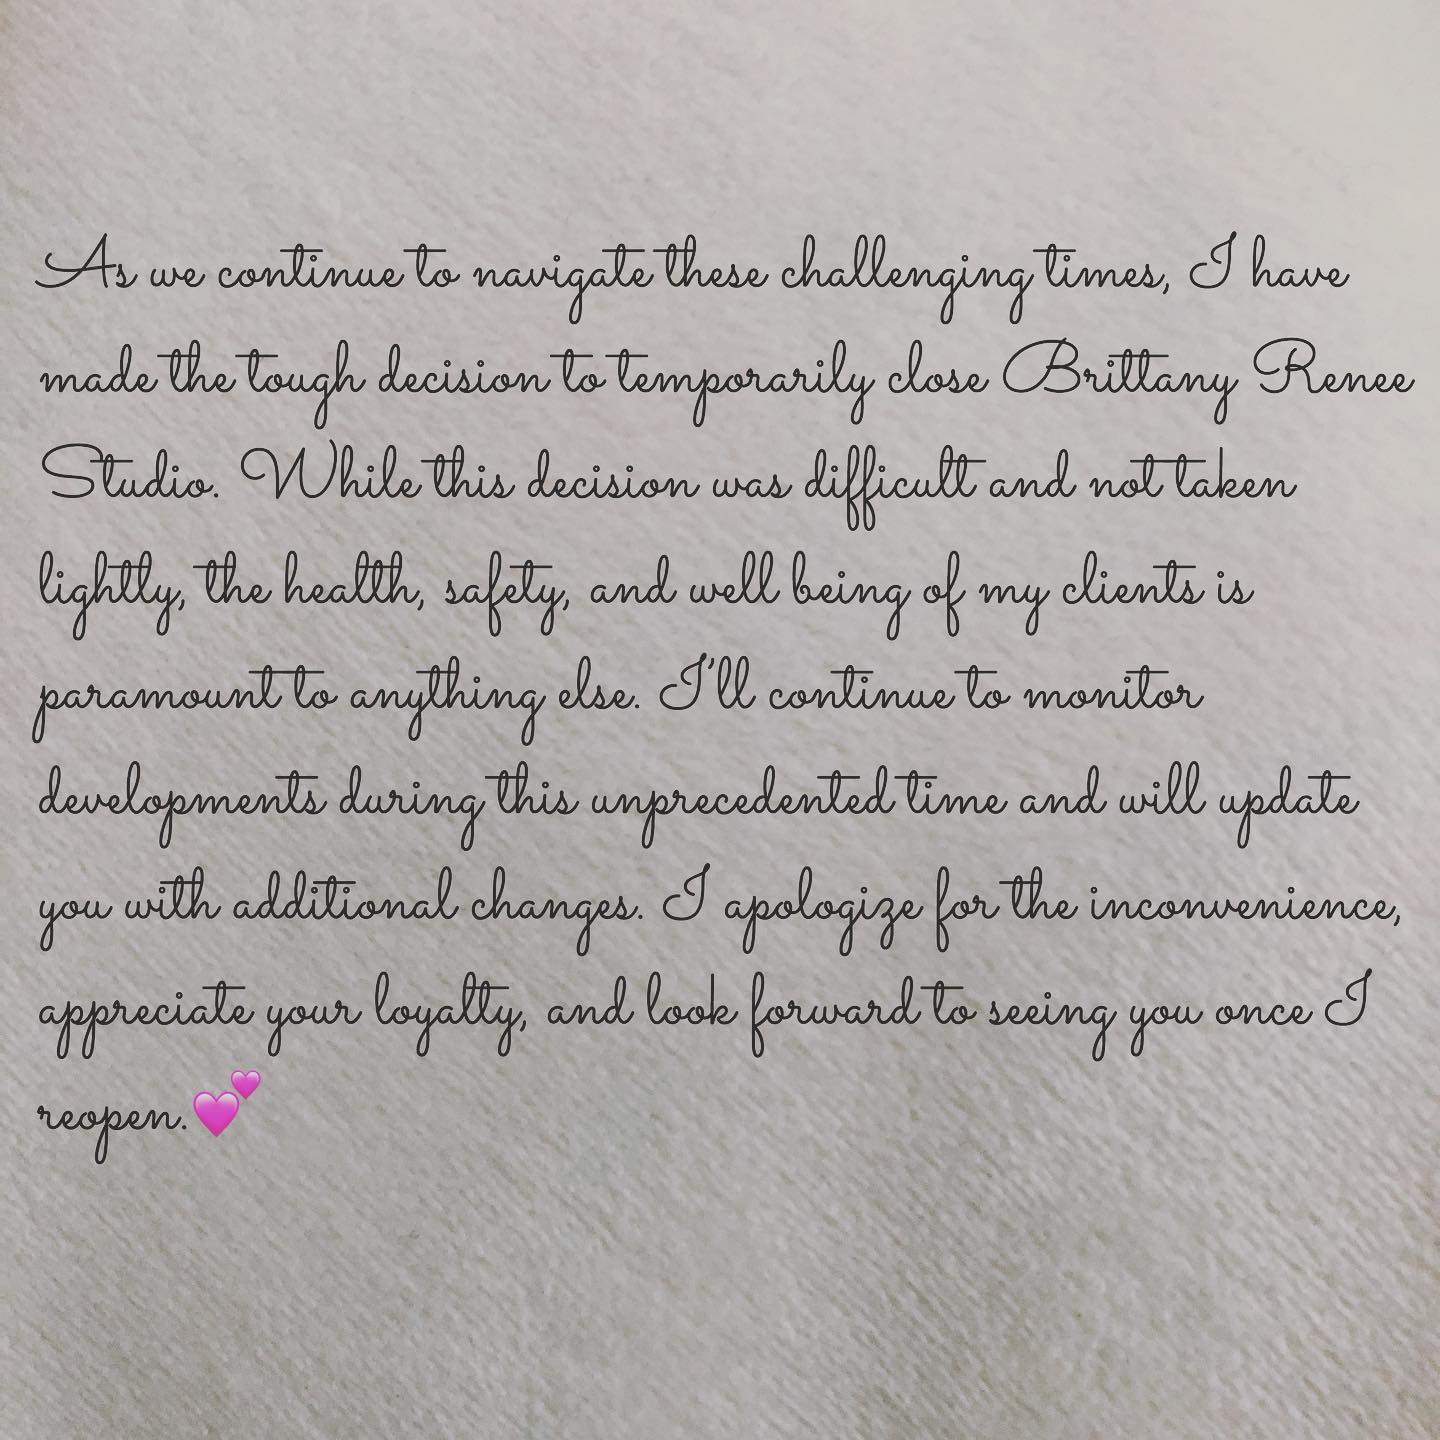 As we continue to navigate these challenging times, I have
made the tough decision to temporarily close Brittany Renee
Studio. While this decision was difficult and not taken
lightly, the health, safety, and well being of my clients is
paramount to anything else. I'll continue to monitor
developments during this unprecedented time and will update
you with additional changes. I apologize for the inconvenience,
appreciate your loyalty, and look forward to seeing you once I
reopen.💕